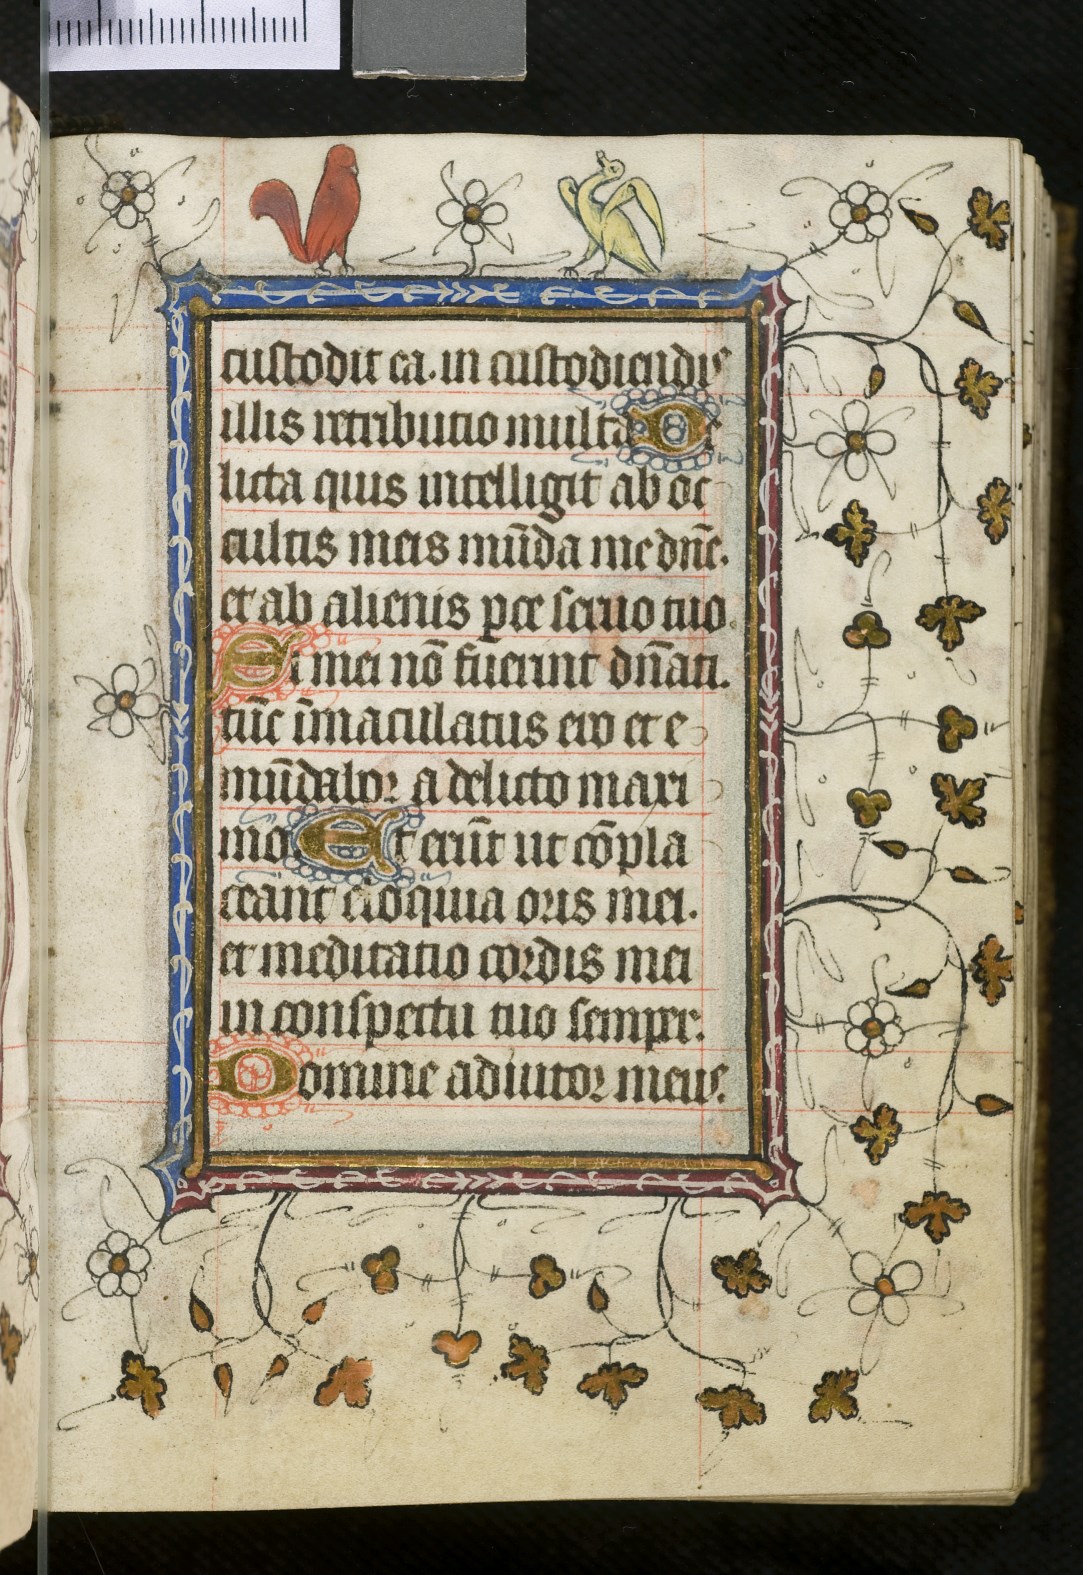 custodit ea. in custodiendis
illis retributio multa De
licta quis intelligit ab oc
cultis meis mūda me dn̄e.
et ab alienis pce seruo tuo.
Si mei nō fuerint dn̄ati.
tūc īmaculatus ero et e
mūdabor a delicto maxi
mo Et erūt ut cōpla
ceant eloquia oris mei.
et meditatio cordis mei
in conspectu tuo semper.
Domine adiutor meus.